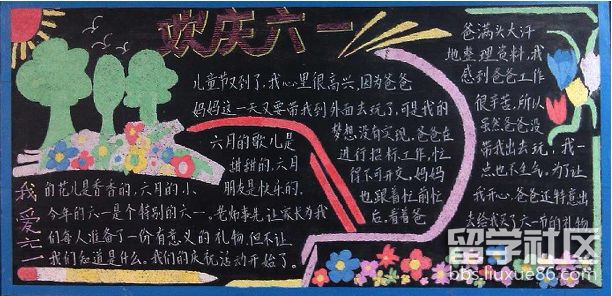 欢庆六一
儿童节又到了,我心里很高兴,因为爸爸
妈妈这一天又要带我到外面去玩了,可是我的
梦想没有实现,爸爸在
进行招标工作,忙
得不可开交,妈妈
也跟着忙前忙
后,看着爸
爸满头大汗
地整理资料,我
感到爸爸工作
很辛苦,所以
虽然爸爸没
带我出去玩,我一
点也不生气,为了让
我开心,爸爸还特意出
去给我买了六一节的礼物
六月的歌儿是
甜甜的,六月
的花儿是香香的,六月的小
朋友是快乐的,
今年的六一是个特别的六一。老师事先让家长为我
们每人准备了一份有意义的礼物,但不让
我们知道是什么。我们的庆祝活动开始了。
我爱六一
留学社区
bbs.liuxue86.com